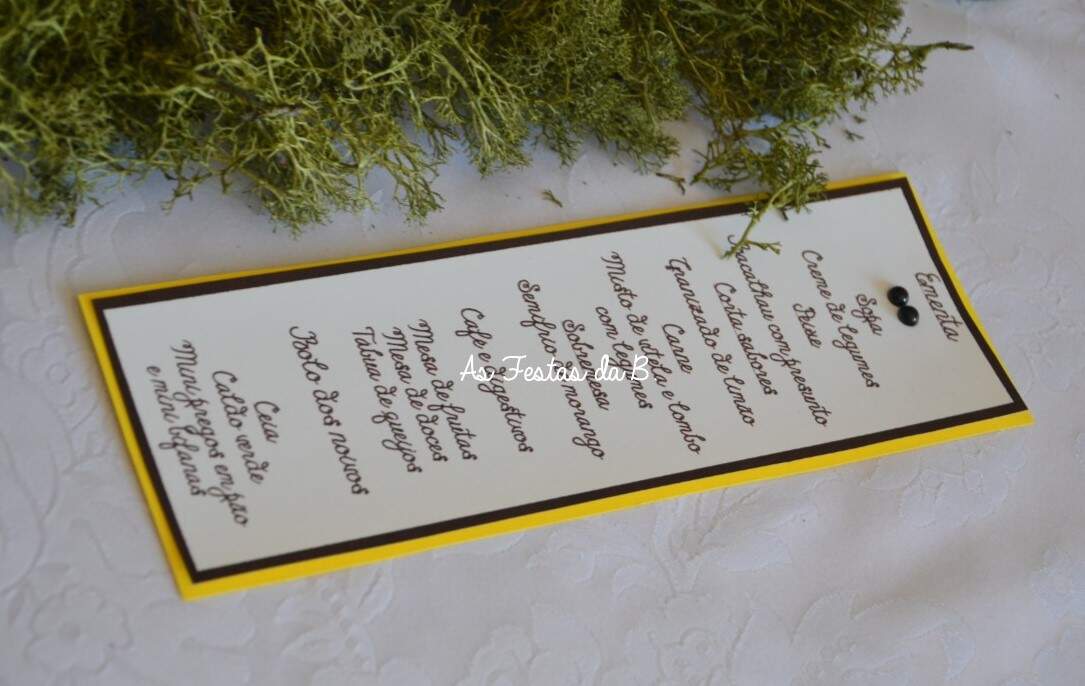 Ementa
Sopa
Creme de legumes
Peixe
Bacalhau com presunto
Costa sabores
Granizado de limão
Carne
Misto de vitela e lombo
com legumes
Sobremesa
Semifrio de morango
Cafe e digestivos
Mesa de frutas
Mesa de doces
Tábua de queijos
Bolo dos noivos
Ceia
Caldo verde
Mini pregos em pão
e mini bifanas
As Festas da B